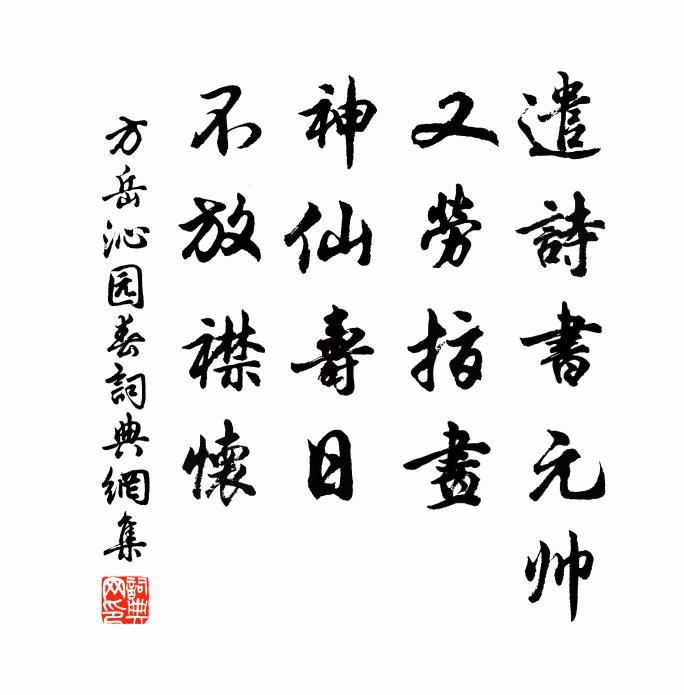 遣詩書元帅
又勞指畫
神仙壽日
不放襟懷
方岳沁园春詞典網集
詞典网印